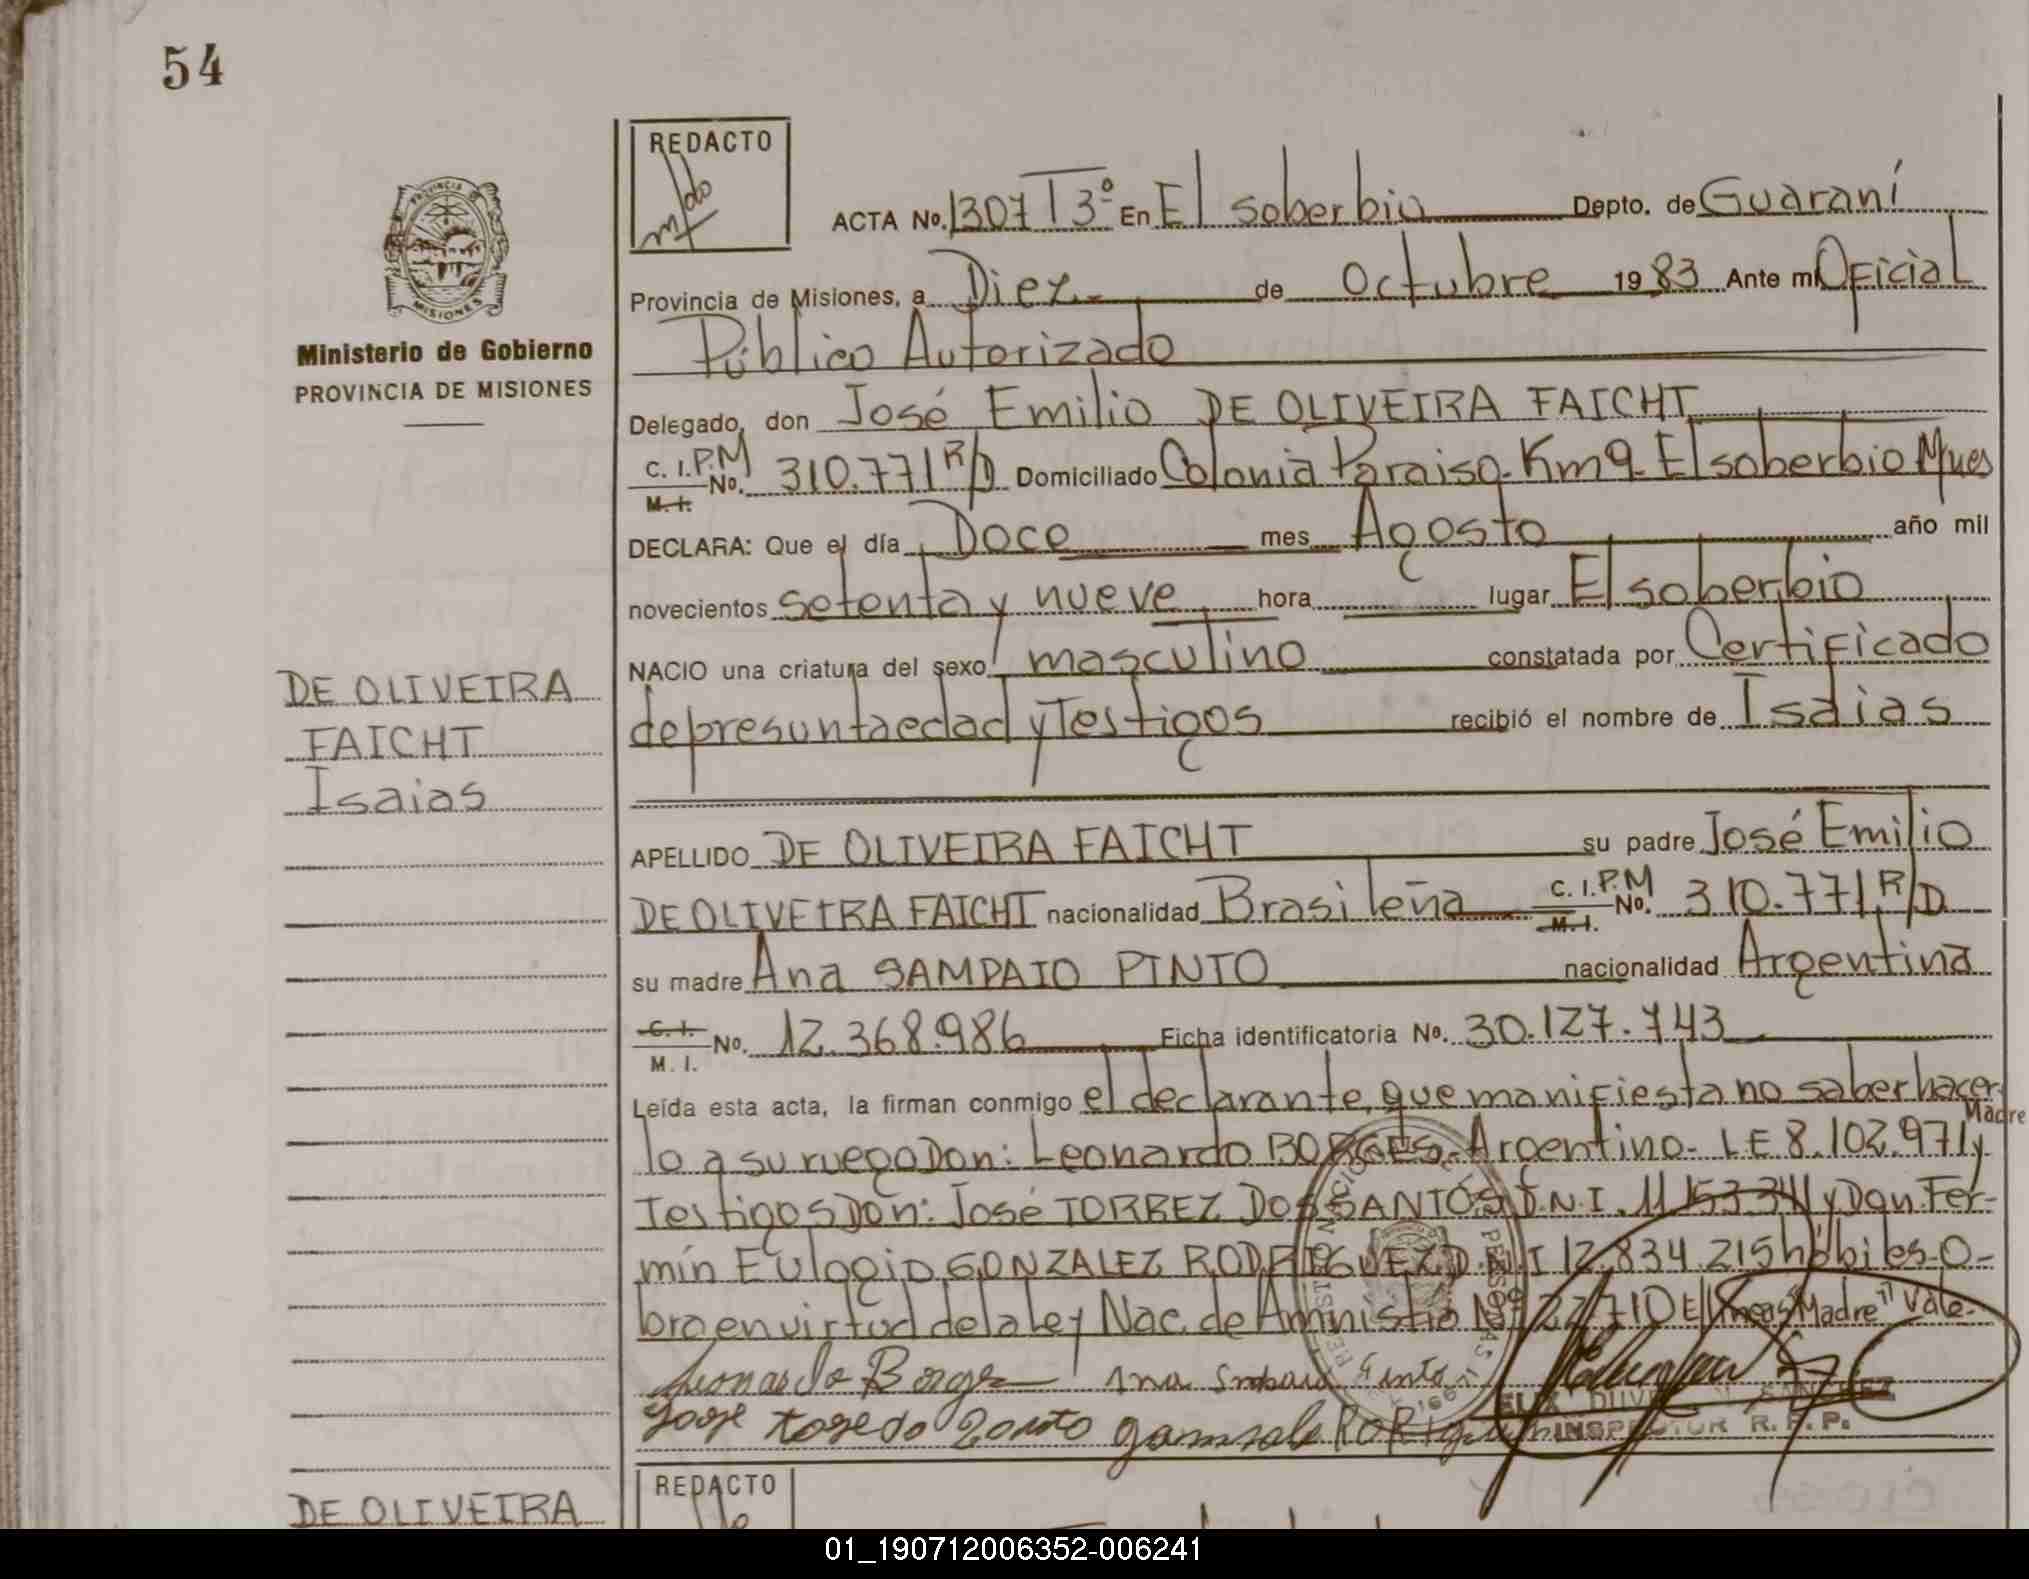 54
REDACTO
ACTA No. 1307 T 3º En El soberbio Depto. de Guaraní
Provincia de Misiones, a Diez de Octubre 1983 Ante mi Oficial
Público Autorizado
Delegado, don José Emilio DE OLIVEIRA FAICHT
C. I. P.M
M. I. No. 310.771 R/D Domiciliado Colonia Paraiso. Km 9. El soberbio Mnes
DECLARA: Que el día Doce mes Agosto año mil
novecientos setenta y nueve hora lugar El soberbio
NACIO una criatura del sexo masculino constatada por Certificado
de presunta edad y Testigos recibió el nombre de Isaias
APELLIDO DE OLIVEIRA FAICHT su padre José Emilio
DE OLIVEIRA FAICHT nacionalidad Brasileña C. I. P.M M. I. No. 310.771 R/D
su madre Ana SAMPAIO PINTO nacionalidad Argentina
C. I. M. I. No. 12.368.986 Ficha identificatoria No. 30.127.743
Leída esta acta, la firman conmigo el declarante, que manifiesta no saber hacer
Madre
lo a su ruego Don: Leonardo BORGES. Argentino- L E 8.102.971 y
Testigos Don: José TORREZ DOS SANTOS D.N.I. 11.153.341 y Don Fer-
mín Eulogio GONZALEZ RODRIGUEZ D.N.I 12.834.215 hábiles. O-
bro en virtud de la ley Nac. de Aministia Nº 22.710 E/líneas "Madre" Vale-
Leonardo Borge Ana Pinto
INSPECTOR R. P. P.
Ministerio de Gobierno
PROVINCIA DE MISIONES
DE OLIVEIRA
FAICHT
Isaias
DE OLIVEIRA
REDACTO
01_190712006352-006241